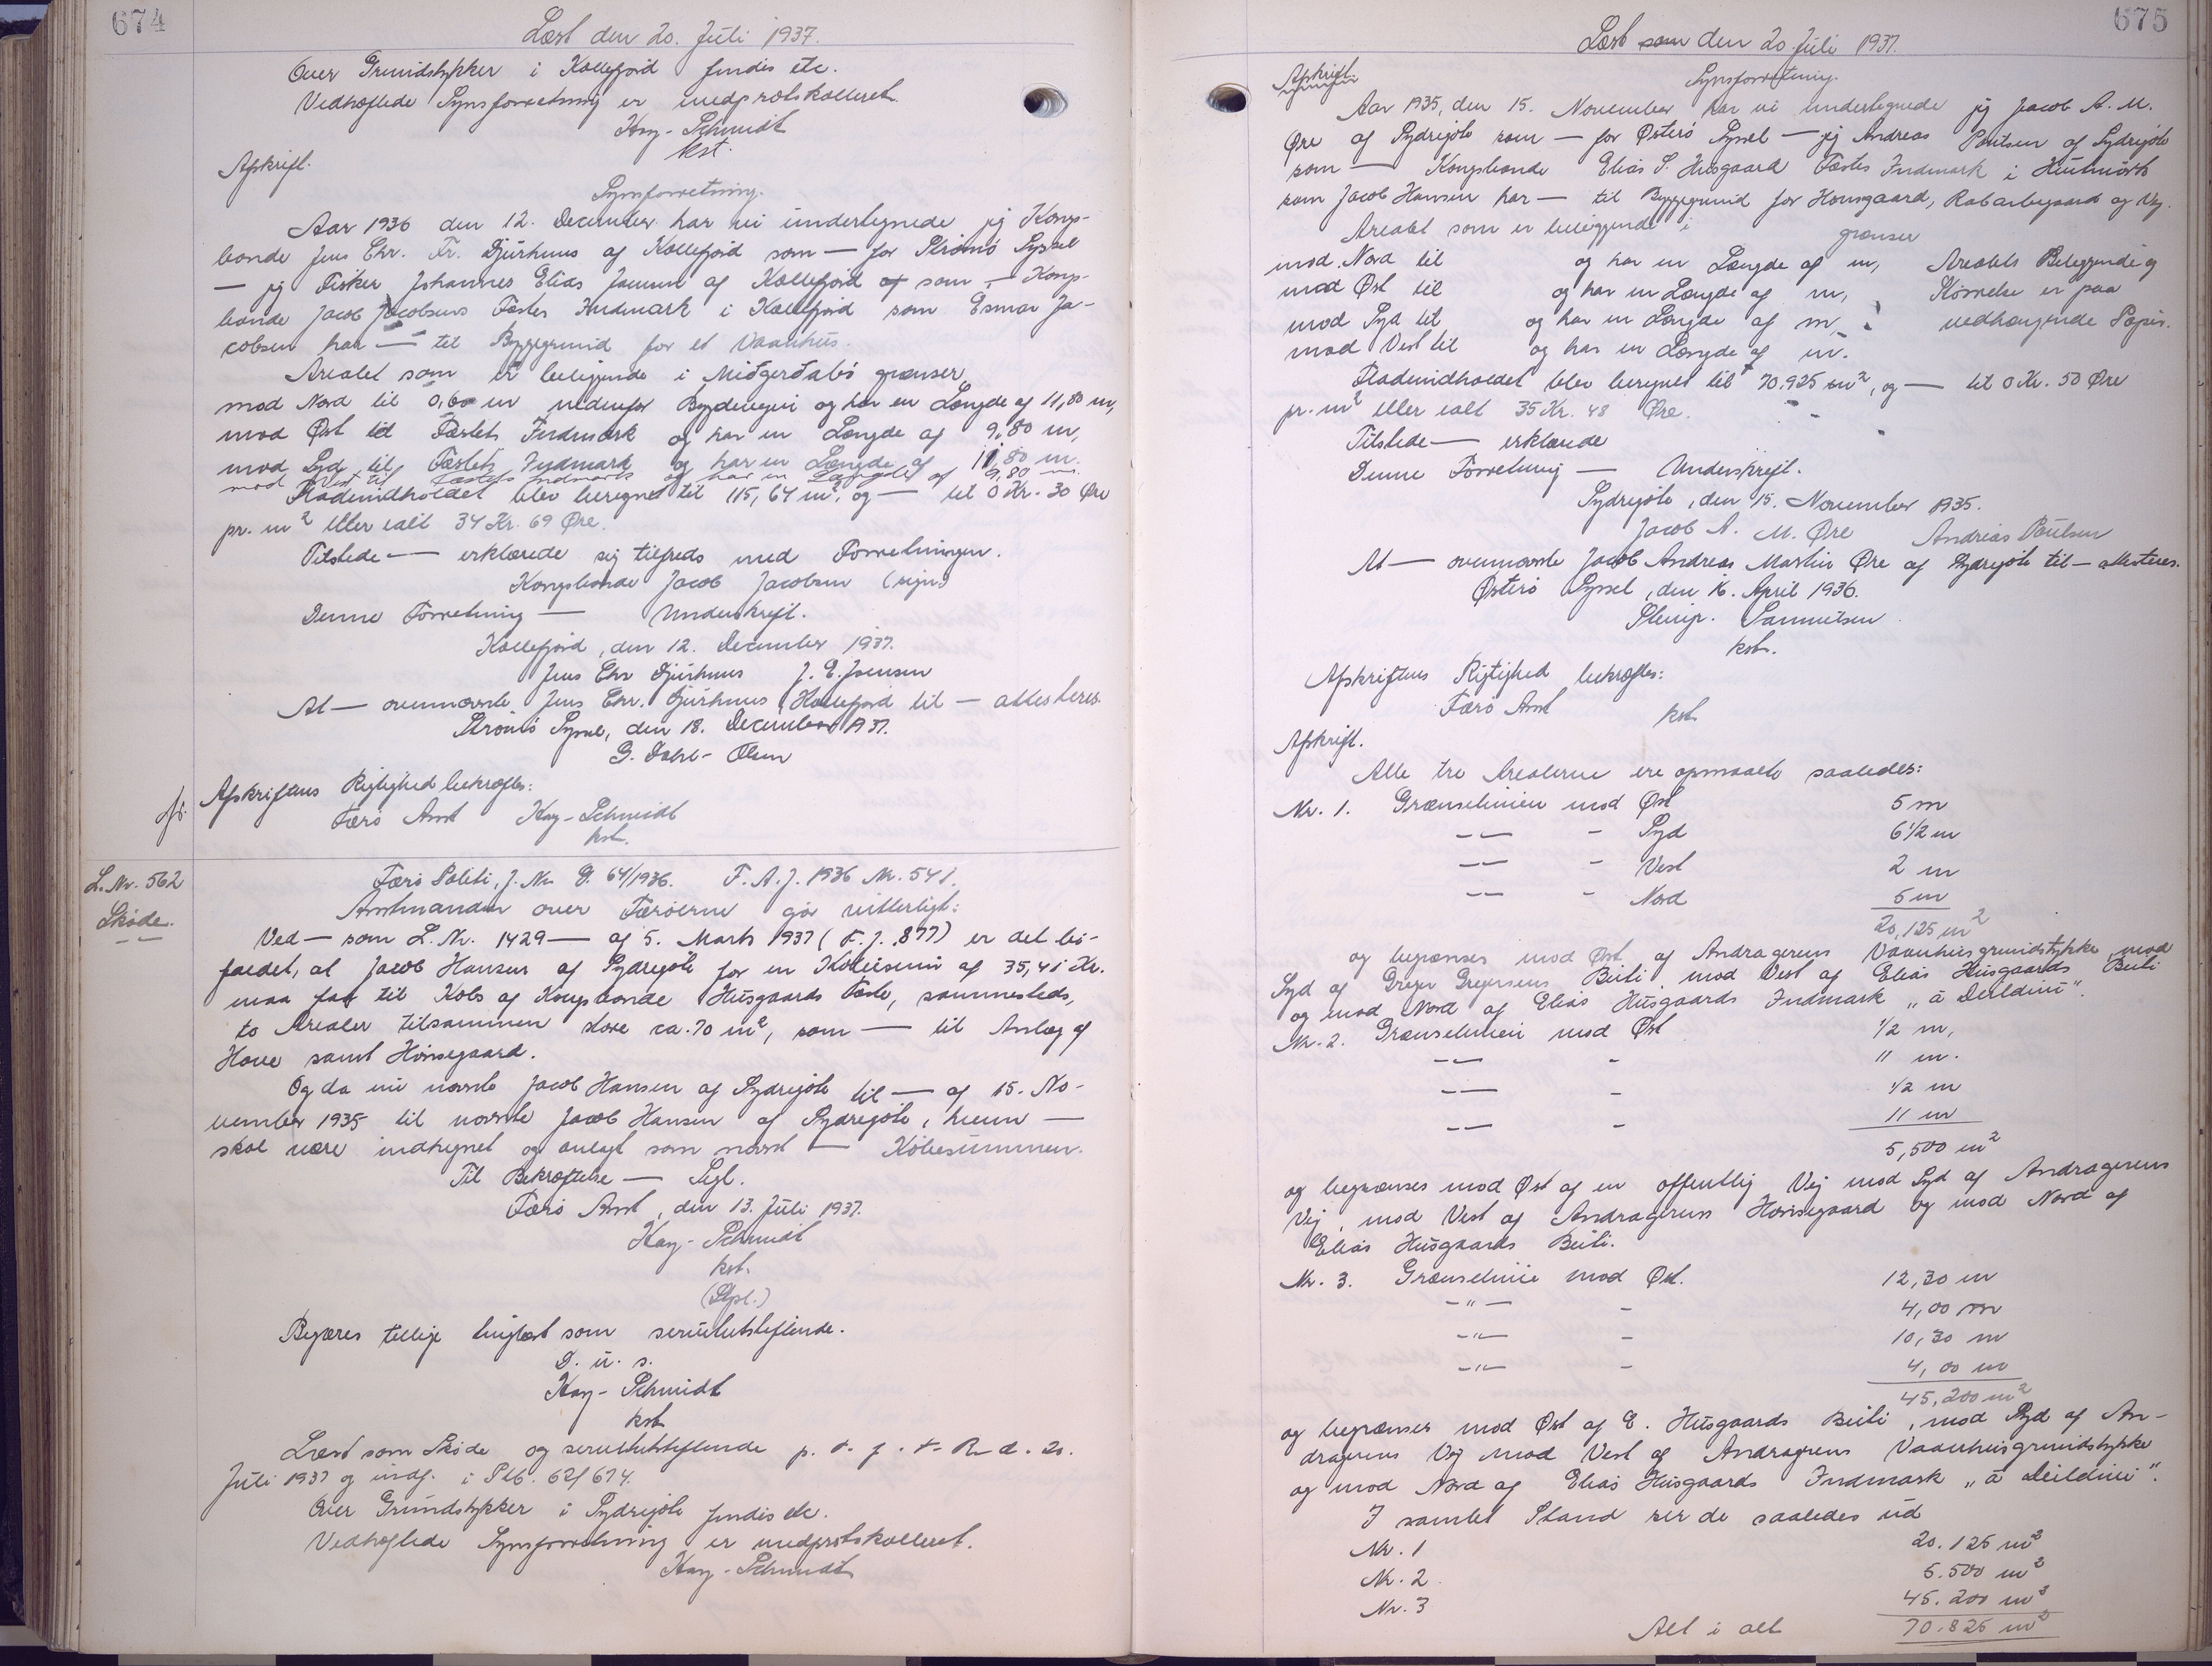 674
Læst den 20. Juli 1937.
Over Grundstykker i Kollefjord findes etc.
Vedhæftede Synsforretning er medprotokolleret.
Kay-Schmidt
kst.
Afskrift.
Synsforretning.
Aar 1936 den 12. December har vi undertegnede jeg Kongs-
bonde Jens Chr. Fr. Djurhuus af Kollefjord som — for Strømø Syssel
— jeg Fisker Johannes Elias Joensen af Kollefjord af som — Kongs-
bonde Jacob Jacobsens Fæstes Indmark i Kollefjord som Esmar Ja-
cobsen har — til Byggegrund for et Vaanhus.
Arealet som er beliggende i Miðgerðabø grænser
mod Nord til 0,60 m nedenfor Bygdevejen og har en Længde af 11,80 m,
mod Øst til Fæstets Indmark og har en Længde af 9,80 m,
mod Syd til Fæstets Indmark og har en Længde af 11,80 m.
mod Vest til Fæstets Indmark og har en Længde af 9,80 m.
Fladeindholdet blev beregnet til 115,64 m², og — til 0 Kr. 30 Øre
pr. m² eller ialt 34 Kr. 69 Øre.
Tilstede — erklærede sig tilfreds med Forretningen.
Kongsbonde Jacob Jacobsen (sign.)
Denne Forretning — Underskrift.
Kollefjord, den 12. December 1937.
Jens Chr Djurhuus J. E. Joensen
At — ovennævnte Jens Chr. Djurhuus Kollefjord til — attesteres.
Strømø Syssel, den 18. December 1937.
G. Dahl-Olsen
Afskriftens Rigtighed bekræftes:
Færø Amt Kay-Schmidt
kst.
L. Nr. 562
Skøde.
Færø Politi, J. Nr. G. 64/1936. F. A. J. 1936 Nr. 541.
Amtmanden over Færøerne gør vitterligt:
Ved — som L. Nr. 1429 — af 5. Marts 1937 (F. J. 877) er det bi-
faldet, at Jacob Hansen af Sydregöte for en Købesum af 35,41 Kr.
maa faa til Købs af Kongsbonde Husgaards Fæste, sammesteds,
to Arealer tilsammen store ca. 70 m², som — til Anlæg af
Have samt Hønsegaard.
Og da nu nævnte Jacob Hansen af Sydregöte til — af 15. No-
vember 1935 til nævnte Jacob Hansen af Sydregöte, hvem —
skal være indhegnet og anlagt som nævnt — Købesummen.
Til Bekræftelse — Segl.
Færø Amt, den 13. Juli 1937.
Kay-Schmidt
kst.
(Stpl.)
Begæres tillige tinglæst som servitutstiftende.
D. u. s.
Kay-Schmidt
kst.
Læst som Skøde og servitutstiftende p. t. f. t. R. d. 20.
Juli 1937 og indf. i Stb. 62/674.
Over Grundstykker i Sydregöte findes etc.
Vedhæftede Synsforretning er medprotokolleret.
Kay-Schmidt
675
Læst som den 20 Juli 1937.
Afskrift.
Synsforretning.
Aar 1935, den 15. November har vi undertegnede jeg Jacob A. M.
Øre af Sydregöte som — for Østerø Syssel — jeg Andreas Poulsen af Sydregöte
som — Kongsbonde Elias S. Husgaard Fæstes Indmark i
som Jacob Hansen har — til Byggegrund for Hønsegaard, Rabarbegaard og Vej.
Arealet som er beliggende i grænser
mod Nord til og har en Længde af m, Arealets Beliggende og
mod Øst til og har en Længde af m, Størrelse er paa
mod Syd til og har en Længde af m, vedhængende Papir.
mod Vest til og har en Længde af m.
Fladeindholdet blev beregnet til 70.925 m², og — til 0 Kr. 50 Øre
pr. m² eller ialt 35 Kr. 48 Øre.
Tilstede — erklærede
Denne Forretning — Underskrift.
Sydregöte, den 15. November 1935.
Jacob A. M. Øre Andreas Poulsen
At — ovennævnte Jacob Andreas Martin Øre af Sydregöte til — attesteres.
Østerø Syssel, den 16. April 1936.
Samuelsen
kst.
Afskriftens Rigtighed bekræftes:
Færø Amt kst.
Afskrift.
Alle tre Arealerne ere opmaalt saaledes:
Nr. 1. Grænselinien mod Øst 5 m
-- - Syd 6 1/2 m
-- - Vest 2 m
-- - Nord 5 m
20,125 m²
og begrænses mod Øst af Andragerens Vaanhusgrundstykke, mod
Syd af Greger Gregersens Beiti, mod Vest af Elias Husgaards Beiti
og mod Nord af Elias Husgaards Indmark „á Deildini".
Nr. 2. Grænselinien mod Øst 1/2 m,
-- - 11 m.
-- - 1/2 m
-- - 11 m
5,500 m²
og begrænses mod Øst af en offentlig Vej mod Syd af Andragerens
Vej, mod Vest af Andragerens Hønsegaard og mod Nord af
Elias Husgaards Beiti.
Nr. 3. Grænselinie mod Øst. 12,30 m
-"- - 4,00 m
-"- - 10,30 m
-"- - 4,00 m
45,200 m²
og begrænses mod Øst af E. Husgaards Beiti, mod Syd af An-
dragerens Vej mod Vest af Andragerens Vaanhusgrundstykke
og mod Nord af Elias Husgaards Indmark „á Deildini".
I samlet Stand ser de saaledes ud
Nr. 1 20.125 m²
Nr. 2 5.500 m²
Nr. 3 45.200 m²
Alt i alt 70.825 m²